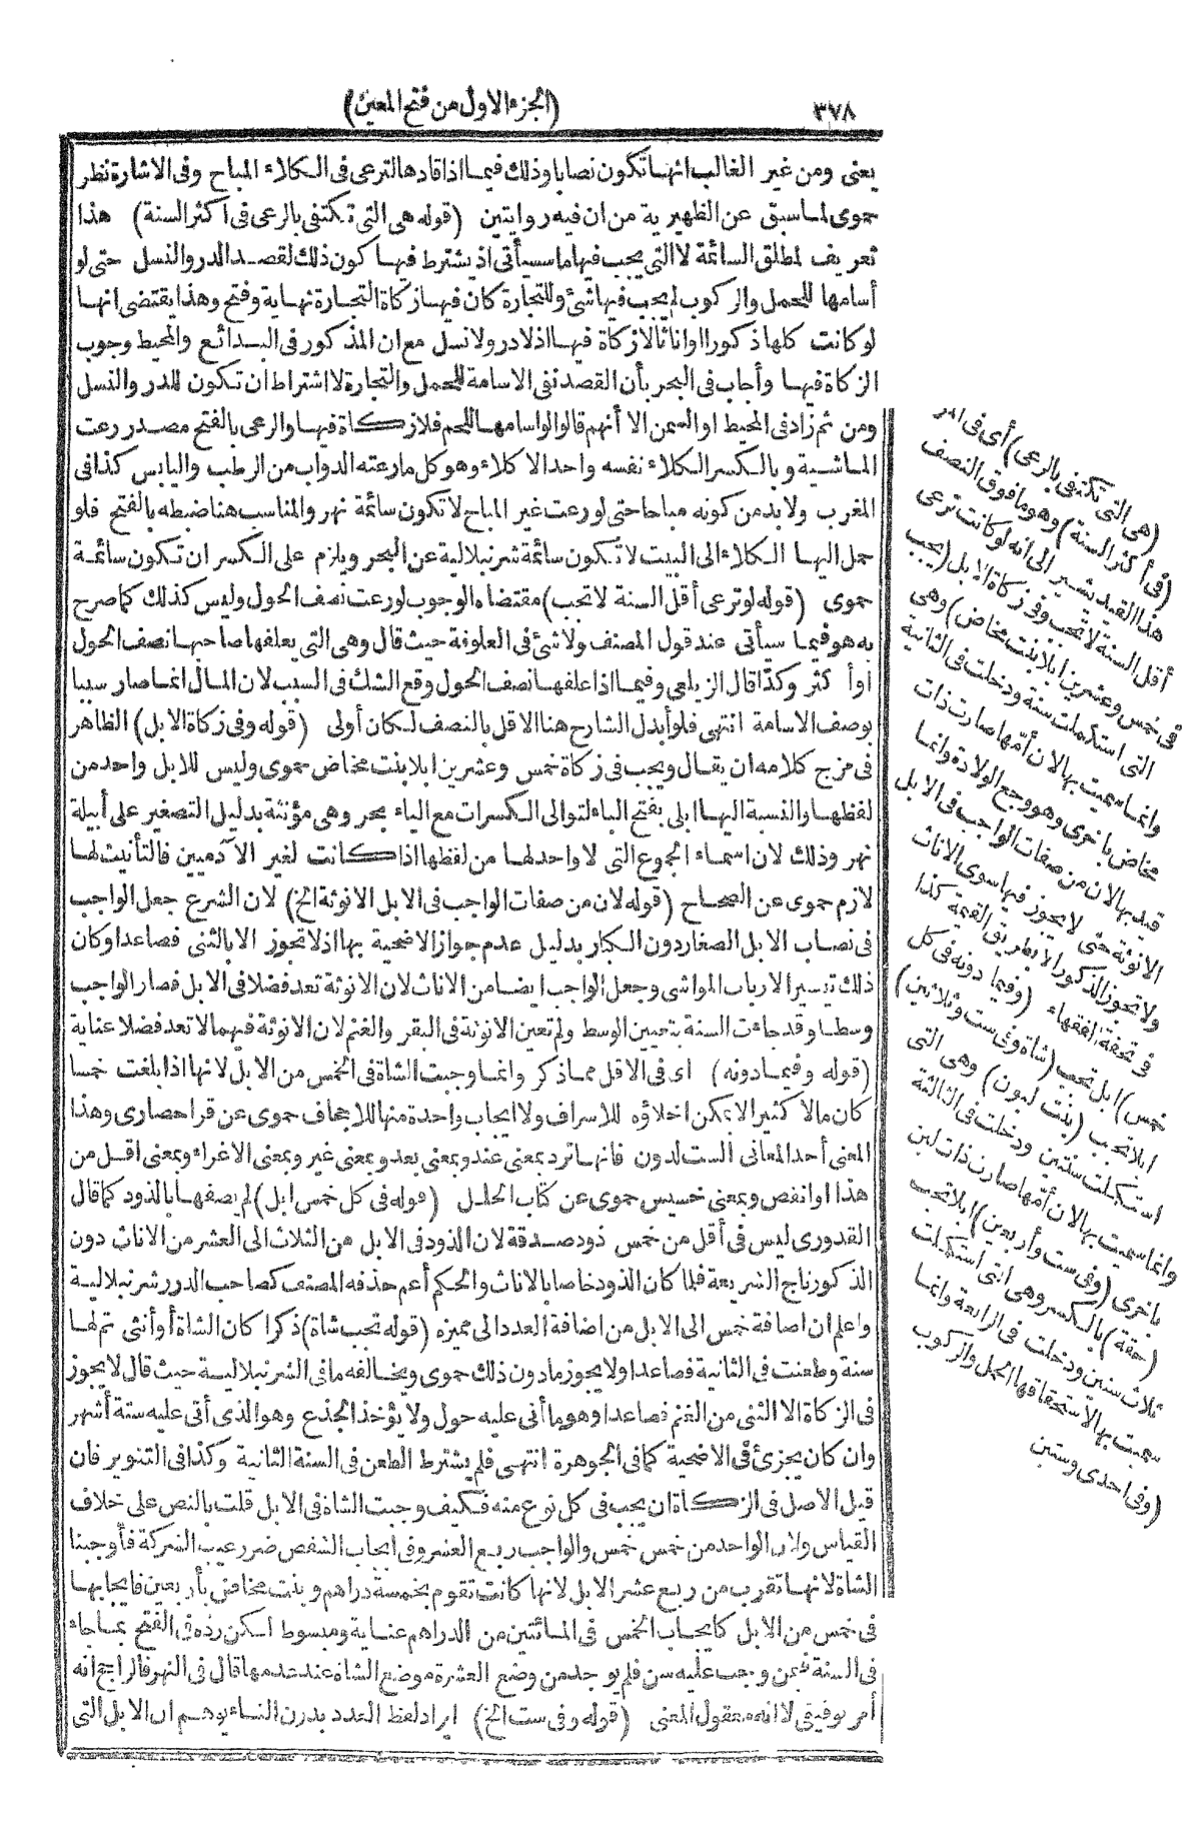 ٣٧٨
(الجزء الاول من فتح المعين)
يعنى ومن غير الغالب انها تكون نصابا وذلك فيما اذا قادها لترعى فى الكلاء المباح وفى الاشارة نظر
حموى لما سبق عن الظهيرية من ان فيه روايتين (قوله هى التى تكتفى بالرعى فى اكثر السنة) هذا
تعريف لمطلق السائمة لا التى يجب فيها ما سيأتى اذ يشترط فيها كون ذلك لقصد الدر والنسل حتى لو
أسامها للحمل والركوب لم يجب فيها شئ وللتجارة كان فيها زكاة التجارة نهاية وفتح وهذا يقتضى انها
لو كانت كلها ذكورا او اناثا لا زكاة فيها اذ لا در ولا نسل مع ان المذكور فى البدائع والمحيط وجوب
الزكاة فيها وأجاب فى البحر بأن القصد نفى الاسامة للحمل والتجارة لا اشتراط ان تكون للدر والنسل
ومن ثم زاد فى المحيط او السمن الا أنهم قالوا لو اسامها للحم فلا زكاة فيها والرعى بالفتح مصدر رعت
الماشية وبالكسر الكلاء نفسه واحد الاكلاء وهو كل ما رعته الدواب من الرطب واليابس كذا فى
المغرب ولا بد من كونه مباحا حتى لو رعت غير المباح لا تكون سائمة نهر والمناسب هنا ضبطه بالفتح فلو
حمل اليها الكلاء الى البيت لا تكون سائمة شرنبلالية عن البحر ويلزم على الكسر ان تكون سائمة
حموى (قوله لو ترعى أقل السنة لا تجب) مقتضاه الوجوب لو رعت نصف الحول وليس كذلك كما صرح
به هو فيما سيأتى عند قول المصنف ولا شئ فى العلوفة حيث قال وهى التى يعلفها صاحبها نصف الحول
أو أكثر وكذا قال الزيلعى وفيما اذا علفها نصف الحول وقع الشك فى السبب لان المال انما صار سببا
بوصف الاسامة انتهى فلو أبدل الشارح هنا الاقل بالنصف لكان أولى (قوله وفى زكاة الابل) الظاهر
فى مزج كلامه ان يقال ويجب فى زكاة خمس وعشرين ابلا بنت مخاض حموى وليس للابل واحد من
لفظها والنسبة اليها ابلى بفتح الباء لتوالى الكسرات مع الياء بحر وهى مؤنثة بدليل التصغير على أبيلة
نهر وذلك لان اسماء الجموع التى لا واحد لها من لفظها اذا كانت لغير الآدميين فالتأنيث لها
لازم حموى عن الصحاح (قوله لان من صفات الواجب فى الابل الانوثة الخ) لان الشرع جعل الواجب
فى نصاب الابل الصغار دون الكبار بدليل عدم جواز الاضحية بها اذ لا تجوز الا بالثنى فصاعدا وكان
ذلك تيسيرا لارباب المواشى وجعل الواجب ايضا من الاناث لان الانوثة تعد فضلا فى الابل فصار الواجب
وسطا وقد جاءت السنة بتعيين الوسط ولم تعين الانوثة فى البقر والغنم لان الانوثة فيهما لا تعد فضلا عناية
(قوله وفيما دونه) اى فى الاقل مما ذكر وانما وجبت الشاة فى الخمس من الابل لانها اذا بلغت خمسا
كان مالا كثيرا لا يمكن اخلاؤه للاسراف ولا ايجاب واحدة منها للاجحاف حموى عن قراحصارى وهذا
المعنى أحد المعانى الست لدون فانها ترد بمعنى عند وبمعنى بعد وبمعنى غير وبمعنى الاغراء وبمعنى اقل من
هذا او انقص وبمعنى خسيس حموى عن كتاب الحلل (قوله فى كل خمس ابل) لم يصفها بالذود كما قال
القدورى ليس فى أقل من خمس ذود صدقة لان الذود فى الابل من الثلاث الى العشر من الاناث دون
الذكور تاج الشريعة فلما كان الذود خاصا بالاناث والحكم أعم حذفه المصنف كصاحب الدرر شرنبلالية
واعلم ان اضافة خمس الى الابل من اضافة العدد الى مميزه (قوله تجب شاة) ذكرا كان الشاة أو أنثى تم لها
سنة وطعنت فى الثانية فصاعدا ولا يجوز ما دون ذلك حموى ويخالفه ما فى الشرنبلالية حيث قال لا يجوز
فى الزكاة الا الثنى من الغنم فصاعدا وهو ما أتى عليه حول ولا يؤخذ الجذع وهو الذى أتى عليه ستة أشهر
وان كان يجزئ فى الاضحية كما فى الجوهرة انتهى فلم يشترط الطعن فى السنة الثانية وكذا فى التنوير فان
قيل الاصل فى الزكاة ان يجب فى كل نوع منه فكيف وجبت الشاة فى الابل قلت بالنص على خلاف
القياس ولان الواحد من خمس خمس والواجب ربع العشر وفى ايجاب الشقص ضرر عيب الشركة فأوجبنا
الشاة لانها تقرب من ربع عشر الابل لانها كانت تقوم بخمسة دراهم وبنت مخاض بأربعين فايجابها
فى خمس من الابل كايجاب الخمس فى المائتين من الدراهم عناية ومبسوط لكن رده فى الفتح بما جاء
فى السنة فيمن وجب عليه سن فلم يوجد من وضع العشرة موضع الشاة عند عدمها قال فى النهر فالراجح انه
أمر توفيقى لا انه معقول المعنى (قوله وفى ست الخ) ايراد لفظ العدد بدون التاء يوهم ان الابل التى
(هى التى تكتفى بالرعى) أى فى المر
(فى أكثر السنة) وهو ما فوق النصف
هذا القيد يشير الى انه لو كانت ترعى
أقل السنة لا تجب وفى زكاة الابل (يجب
فى خمس وعشرين ابلا بنت مخاض) وهى
التى استكملت سنة ودخلت فى الثانية
وانما سميت بها لان أمها صارت ذات
مخاض باخرى وهو وجع الولادة وانما
قيد بها لان من صفات الواجب فى الابل
الانوثة حتى لا يجوز فيها سوى الاناث
ولا تجوز الذكور الا بطريق القيمة كذا
فى تحفة الفقهاء (وفيما دونه فى كل
خمس) ابل تجب (شاة وفى ست وثلاثين)
ابلا تجب (بنت لبون) وهى التى
استكملت سنتين ودخلت فى الثالثة
وانما سميت بها لان أمها صارت ذات لبن
باخرى (وفى ست وأربعين) ابلا تجب
(حقة) بالكسر وهى التى استكملت
ثلاث سنين ودخلت فى الرابعة وانما
سميت بها لاستحقاقها الحمل والركوب
(وفى احدى وستين